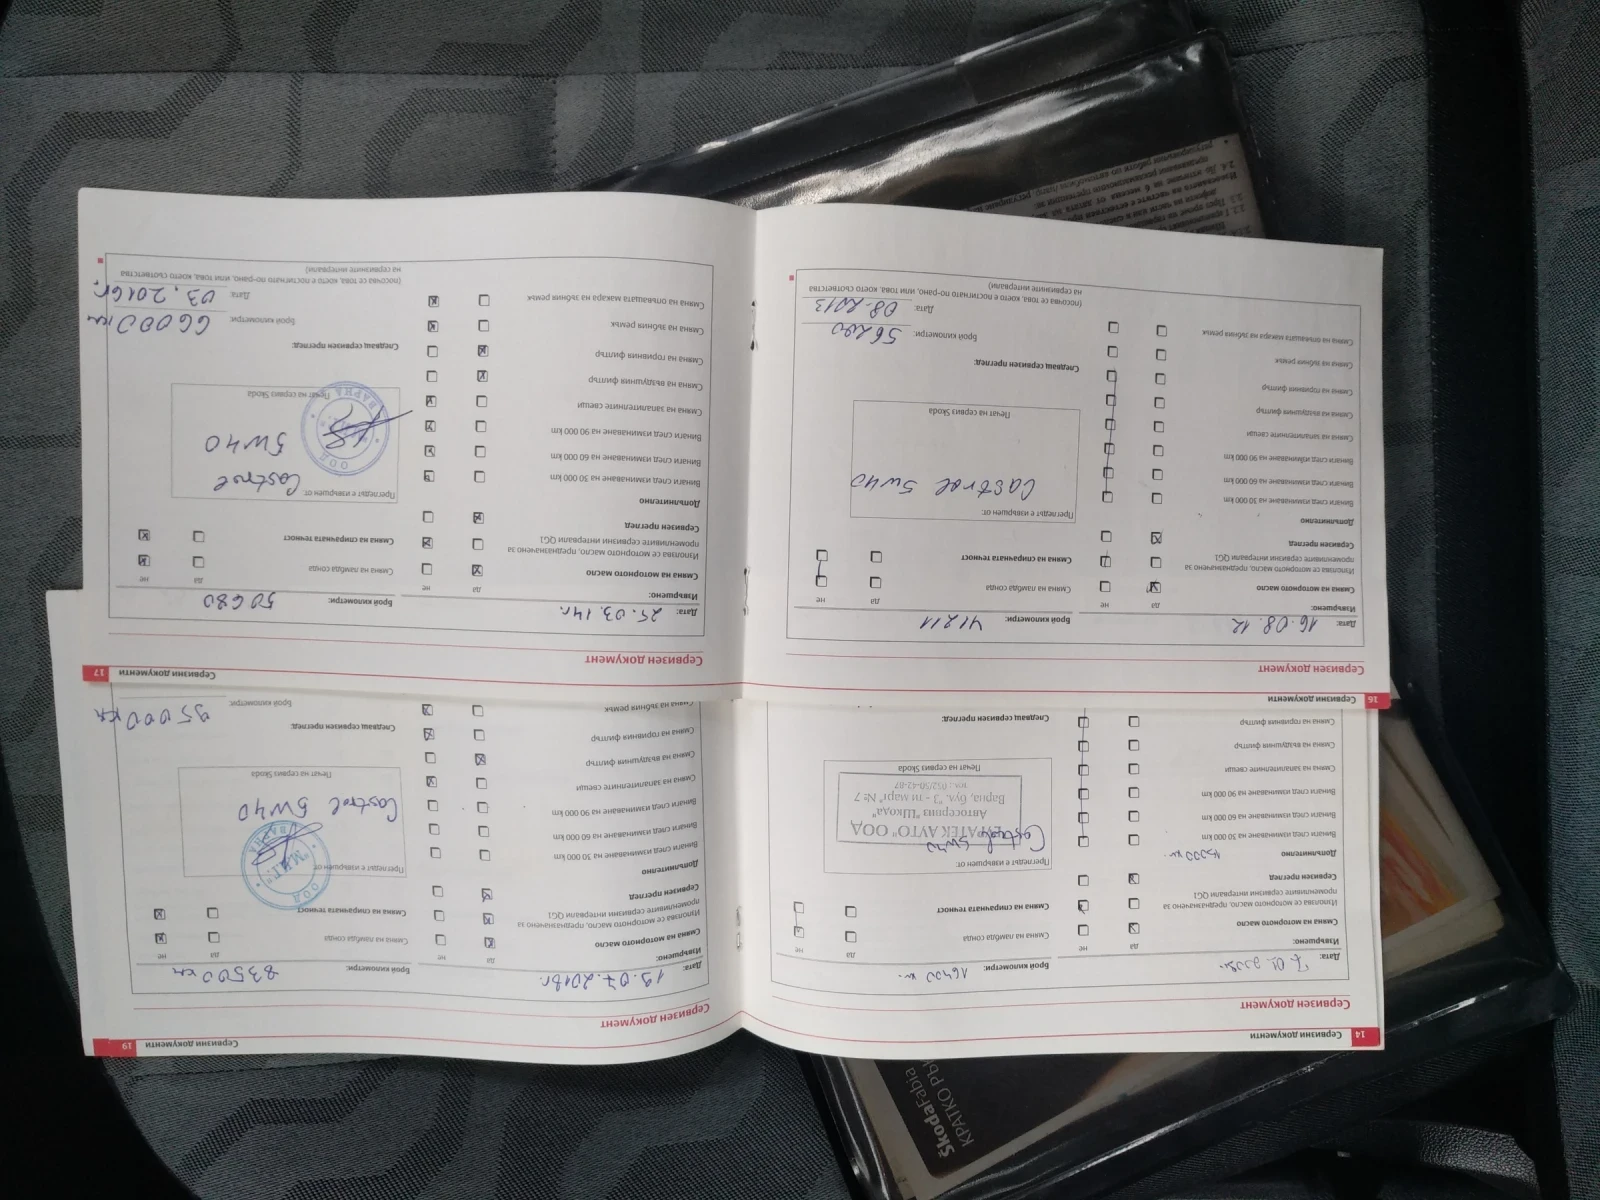 14
Сервизни документи
Сервизен документ
Дата: 7.01.2009г.
Брой километри: 16400 км.
Извършено:
да
не
да
не
Смяна на моторното масло
Смяна на ламбда сонда
Използва се моторното масло, предназначено за
променливите сервизни интервали QG1
Смяна на спирачната течност
Сервизен преглед
Допълнително
Винаги след изминаване на 30 000 km
Прегледът е извършен от:
Винаги след изминаване на 60 000 km
Castrol 5w40
Автосервиз "Шкода"
Варна, бул. "3 - ти март" № 7
Винаги след изминаване на 90 000 km
Смяна на запалителните свещи
Печат на сервиз Skoda
Смяна на въздушния филтър
Смяна на горивния филтър
Следващ сервизен преглед:
Сервизни документи
19
Сервизен документ
Дата: 19.07.2018г.
Брой километри: 83500 км
Извършено:
да
не
да
не
Смяна на моторното масло
Смяна на ламбда сонда
Използва се моторното масло, предназначено за
променливите сервизни интервали QG1
Смяна на спирачната течност
Сервизен преглед
Допълнително
Прегледът е извършен от:
ООД
ВАРНА
Винаги след изминаване на 30 000 km
Винаги след изминаване на 60 000 km
Castrol 5w40
Винаги след изминаване на 90 000 km
Смяна на запалителните свещи
Печат на сервиз Skoda
Смяна на въздушния филтър
Смяна на горивния филтър
Следващ сервизен преглед:
Смяна на зъбния ремък
Брой километри: 95000 км
16
Сервизни документи
Сервизен документ
Дата: 16.08.12
Брой километри: 41211
Извършено:
да
не
да
не
Смяна на моторното масло
Смяна на ламбда сонда
Използва се моторното масло, предназначено за
променливите сервизни интервали QG1
Смяна на спирачната течност
Сервизен преглед
Допълнително
Прегледът е извършен от:
Винаги след изминаване на 30 000 km
Castrol 5w40
Винаги след изминаване на 60 000 km
Винаги след изминаване на 90 000 km
Смяна на запалителните свещи
Печат на сервиз Skoda
Смяна на въздушния филтър
Смяна на горивния филтър
Следващ сервизен преглед:
Смяна на зъбния ремък
Брой километри: 56200
Смяна на опъващата макара на зъбния ремък
Дата: 08.2013
(посочва се това, което е постигнато по-рано, или това, което съответства
на сервизните интервали)
Сервизни документи
17
Сервизен документ
Дата: 25.03.14г.
Брой километри: 50680
Извършено:
да
не
да
не
Смяна на моторното масло
Смяна на ламбда сонда
Използва се моторното масло, предназначено за
променливите сервизни интервали QG1
Смяна на спирачната течност
Сервизен преглед
Допълнително
Прегледът е извършен от:
Винаги след изминаване на 30 000 km
Castrol
5w40
ООД
ВАРНА
Винаги след изминаване на 60 000 km
Винаги след изминаване на 90 000 km
Смяна на запалителните свещи
Печат на сервиз Skoda
Смяна на въздушния филтър
Смяна на горивния филтър
Следващ сервизен преглед:
Смяна на зъбния ремък
Брой километри: 66000 км
Смяна на опъващата макара на зъбния ремък
Дата: 03.2016г.
(посочва се това, което е постигнато по-рано, или това, което съответства
на сервизните интервали)
ŠkodaFabia
КРАТКО РЪ